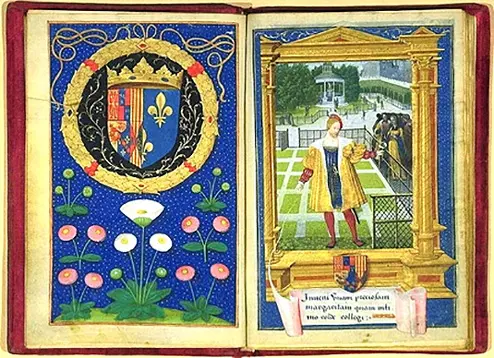 Inueni Vnam preciosam
margaritam quam inti
mo corde collegi: